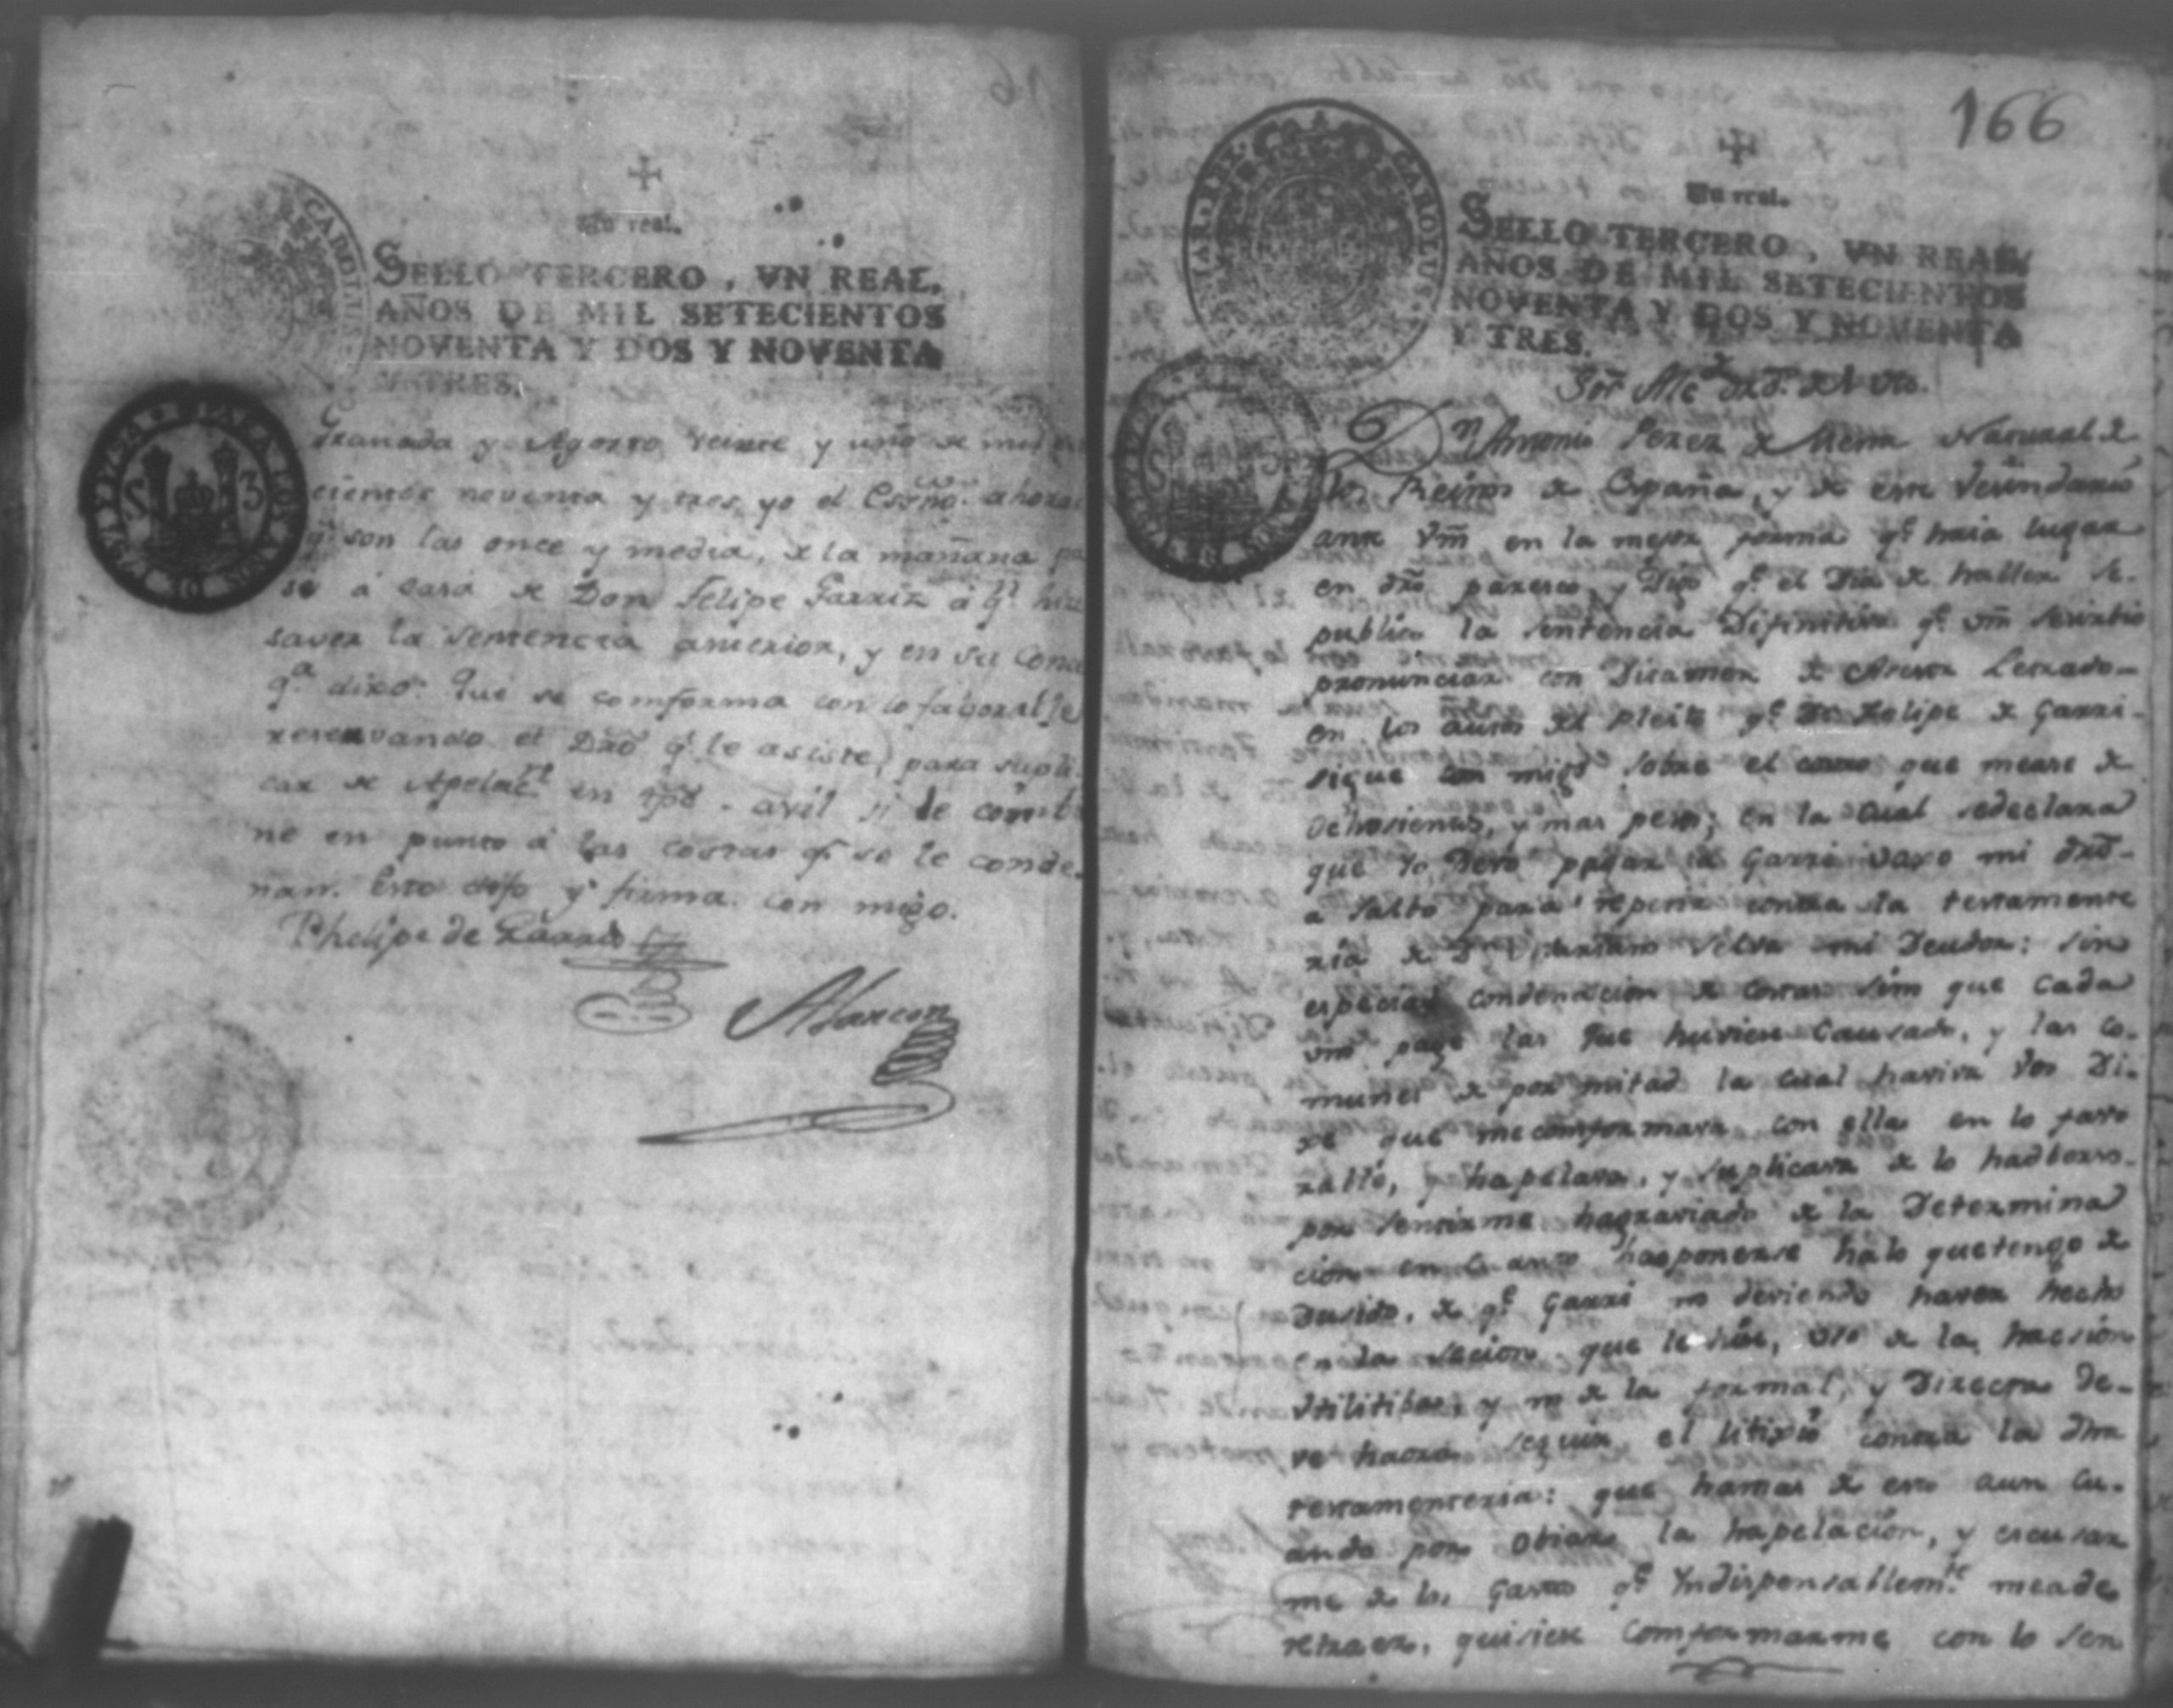 Un real.
SELLO TERCERO, VN REAL,
AÑOS DE MIL SETECIENTOS
NOVENTA Y DOS Y NOVENTA
Y TRES.
CAROLUS
Granada y Agosto veinte y uno de mil se
cientos noventa y tres yo el Essño. ahora
qe. son las once y media, de la mañana pa
se á casa de Don Felipe Garriz á qn. hize
saver la sentencia anterior, y en su Conse
qa. dixo: Que se comforma con lo faborable
reservando el Dro. qe. le asiste, para supli-
car de Apelacn. en
ne en punto á las costas qe. se le conde-
nan. Esto dijo y firma con migo.
Phelipe de Garris
Alarcon
166
Un real.
SELLO TERCERO, VN REAL,
AÑOS DE MIL SETECIENTOS
NOVENTA Y DOS Y NOVENTA
Y TRES.
CAROLUS
Sor. Alce. Ordo. de 1o. vto.
Dn. Antonio Perez de Mena Natural de
los Reinos de España, y de este Vecindario
ante Vm̃ en la mejor forma qe. haia lugar
en dro. paresco, y Digo qe. el Dia de haller se
publico la sentencia Difinitiva qe. vm̃ se sirbio
pronunciar con Dictamen de Acesor Letrado
en los autos del pleito qe. Dn. Felipe de Garri
sigue con migo sobre el cobro que me hase de
ochosientos, y mas pesos; en la cual se declara
que Yo Devo pagar a Garri vaxo mi dro.
a salbo para repetir contra la testamente
ria de Dn. Mariano Selva mi Deudor: sin
especial condenacion de costas sino que cada
uno page las que huviese Causado, y las co-
munes de por mitad la cual haviva vos Di-
xe que me comformava con ella en lo favo
rable, y hapelava, y suplicava de lo hadberso
por sentirme hagraviado de la Determina
cion en cuanto hasponerse ha lo que tengo de
dusido, de qe. Garri no deviendo haver hecho
en la secion que le hise, uso de la haccion
utilitibas, y no de la formal, y Directa De-
ve haora seguir el litixio contra la dha
testamenteria: que hamas de esto aun cu-
ando por obiar la hapelacion, y escusar
me de los Gastos qe. Yndispensablemte. me a de
retraer, quisiera comformarme con lo sen